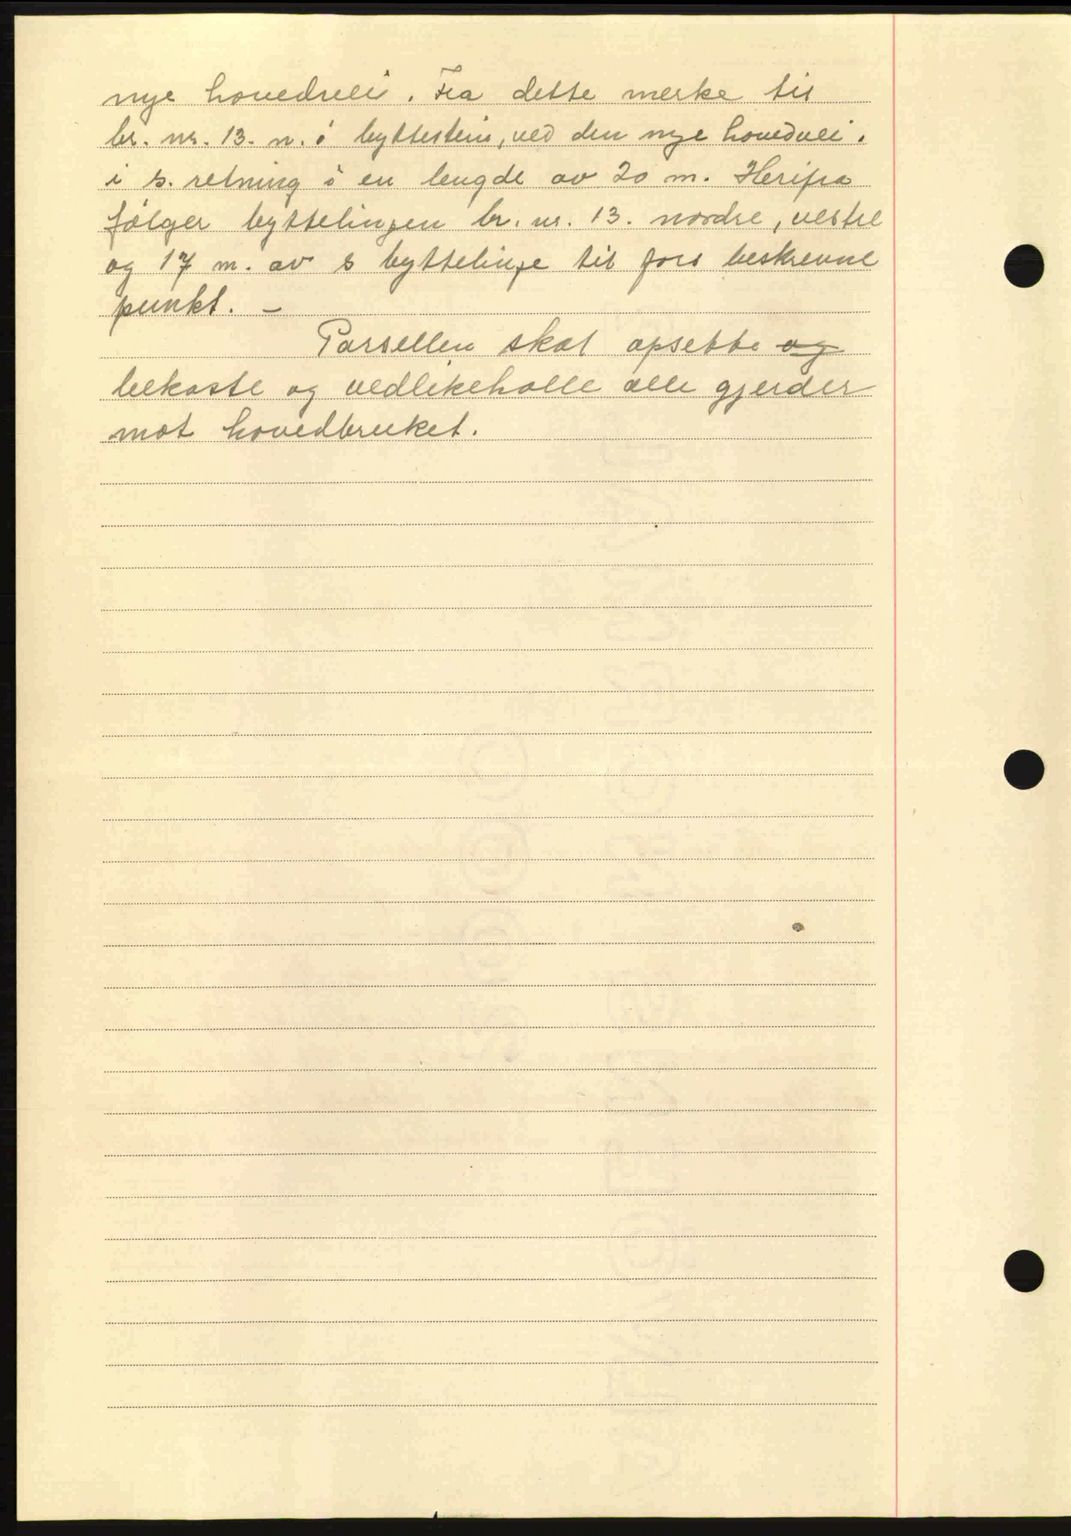 nye hovedvei. Fra dette merke til
br. nr. 13. n. i byttestein, ved den nye hovedvei.
i s. retning i en lengde av 20 m. Herifra
følger byttelingen br. nr. 13. nordre, vestre
og 17 m. av s byttelinje til førs beskrevne
punkt. –
Parsellen skal opsette og
bekoste og vedlikeholle alle gjerder
mot hovedbruket.